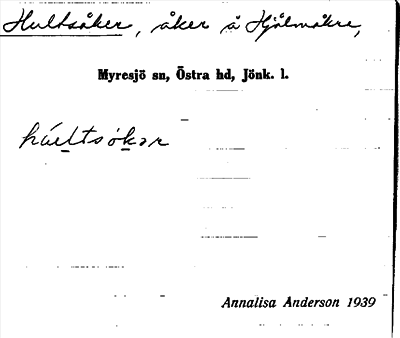 Hultsåker, åker å Hjälmåkra,
Myresjö sn, Östra hd, Jönk. l.
Annalisa Anderson 1939